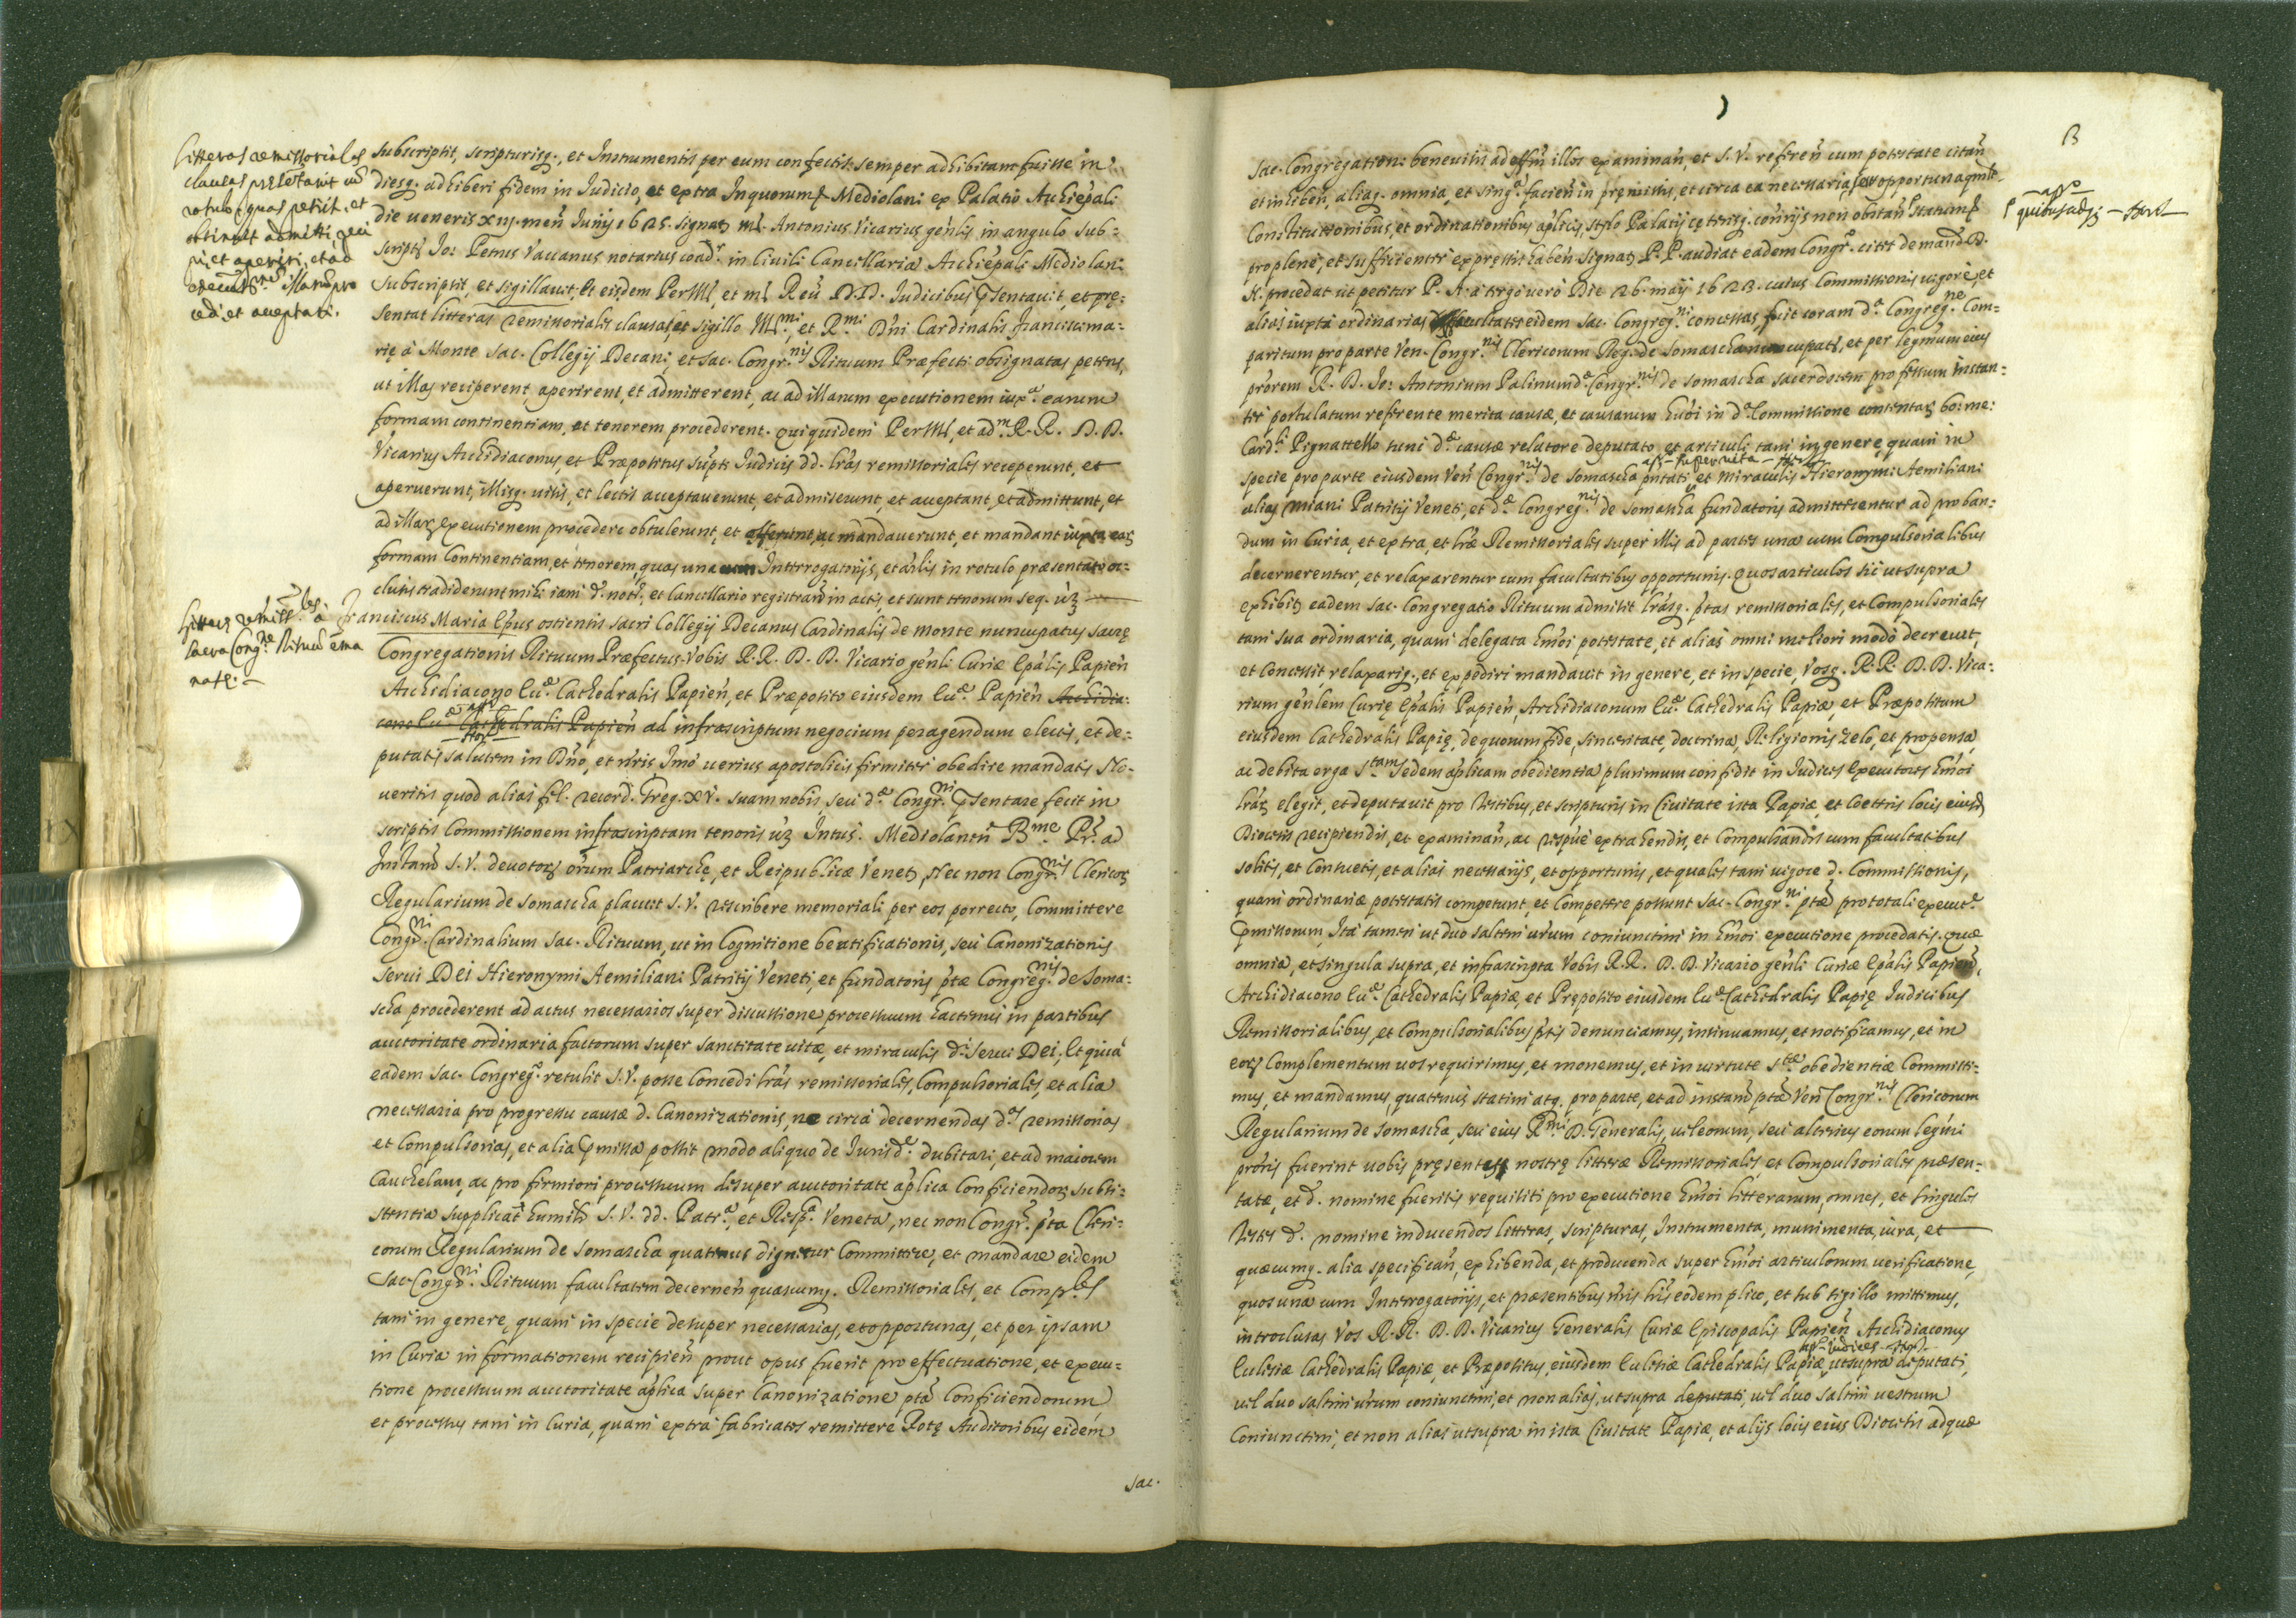 litteras remissoriales
clausas presetavit cu
rotulo, quas petiit, et
obtinuit admitti, reci
pi, et aperiri, et ad
executne illaru pro
cedi et acceptari.
subscriptis, scripturisq., et Instrumentis per eum confectis semper adhibitam fuisse in
diesq. adhiberi fidem in Judicio, et extra Inquorum Mediolani ex Palatio Archiepali
die veneris xiij. men Junij 1625. signat ml. Antonius Vicarius genlis in angulo sub=
scripts Jo: Petrus Vaccanus notarius coadr in Civili Cancellaria Archiepali Mediolani
subscripsit, et sigillavit. Et eisdem PerIll, et ml Reu D.D. Judicibus psentavit, et prę=
sentat litteras remissoriales clausas, et sigillo Illmi, et Rmi Dni Cardinalis Francisci ma=
rię à Monte sac. Collegij Decani, et sac. Congrnis Rituum Præfecti obsignatas petens,
ut illas reciperent, aperirent, et admitterent, ac ad illarum executionem iuxa earum
formam continentiam, et tenorem procederent. Qui quidem PerIll, et adm R.R. D.D.
Vicarius Archidiaconus, et Præpositus supti Judicis dd. lras remissoriales receperunt, et
aperuerunt, illisq. visis, et lectis acceptaverunt, et admiserunt, et acceptant, et admittunt, et
ad illar executionem procedere obtulerunt, et offerunt, ac mandaverunt, et mandant iuxta ear
formam Continentiam, et tenorem, quas una cum Interrogatorijs, et arlis in rotulo præsentatis oc=
clusis tradiderunt mihi iam d. noto, et Cancellario registrand in actis, et sunt tenorum seq. uz
littere remissles à
sacra Congne Rituu ema
nate.
Franciscus Maria Epus ostiensis sacri Collegij Decanus Cardinalis de monte nuncupatus sacrę
Congregationis Rituum Præfectus Vobis R.R. D.D. Vicario genli Curiæ Epalis Papien
Archidiacono Eccæ Cathedralis Papien, et Præposito eiusdem Eccæ Papien Archidia=
cono Eccæ Cathedralis Papien ad infrascriptum negocium peragendum electis, et de=
putatis salutem in Dno, et nris Imò verius apostolicis firmiter obedire mandatis No=
veritis quod alias fel. record. Greg. XV. suam nobis seu dæ Congrni psentare fecit in
scriptis Commissionem infrascriptam tenoris uz Intus: Mediolanen Bme Pr. ad
Instand S.V. devotor orum Patriarchę, et Reipublicæ Venet, Nec non Congrnis Clericor
Regularium de somascha placuit S.V. rescribere memoriali per eos porrecto, Committere
Congrni Cardinalium Sac. Rituum, ut in Cognitione beatificationis, seu Canonizationis
servi Dei Hieronymi Aemiliani Patritij Veneti, et fundatoris ptæ Congregnis de Soma=
scha procederent ad actus necessarios super discussione processuum hactenus in partibus
auctoritate ordinaria factorum super sanctitate vitæ, et miraculis d. servi Dei; Et quia
eadem Sac. Congrego retulit S.V. posse Concedi lras remissoriales, Compulsoriales, et alia
necessaria pro progressu causæ d. Canonizationis, ne circa decernendas das remissorias
et Compulsorias, et alia pmissa possit modo aliquo de Jurisde dubitari, et ad maiorem
Cauthelam, ac pro firmiori processuum desuper auctoritate aplica Conficiendor subsi=
stentia supplicat humilr S.V. dd. Patra, et Respa Veneta, nec non Congr. pta Cleri=
corum Regularium de Somascha quatenus dignetur Committere, et mandare eidem
Sac. Congrni Rituum facultatem decernen quascumq. Remissoriales, et Comples
tam in genere, quam in specie desuper necessarias, et opportunas, et per ipsam
in Curia informationem recipien prout opus fuerit pro effectuatione, et execu=
tione processuum auctoritate aplica super Canonizatione pta Conficiendorum,
et processus tam in Curia, quam extra fabricatos remittere Rotę Auditoribus eidem
Sac.
B
Sac. Congregation: benevisis ad effm illos examinan, et S.V. referen cum potestate citan
et inhiben, aliaq. omnia, et singa facien in pręmissis, et circa ea necessaria, seu opportuna
Constitutionibus, et ordinationibus aplicis, stylo Palatij cęterisq. conrijs non obstan statum
pro plene, et sufficienter expressis haben Signat P.P. audiat eadem Congro. citet demand.
N. procedat ut petitur P. A. à tergo verò Die 26. maij 1623. cuius Commissionis vigore, et
alias iuxta ordinarias facultates eidem Sac. Congregni concessas, fuit coram da Congregne Com=
paritum pro parte Ven. Congrnis Clericorum Reg. de Somascha nuncupats, et per legmum eius
prorem R. D. Jo: Antonium Palinum dæ Congrnis de Somascha sacerdotem professum instan=
ter postulatum referente merita causæ, et causarum huoi in da Commissione contentar bo: me:
Cardli Pignattello tunc dæ causæ relatore deputato et articuli tam in genere, quam in
specie pro parte eiusdem Ven Congrnis de Somascha putati super vita et miraculis Hieronymi Aemiliani
alias Miani Patritij Veneti, et dæ Congregnis de Somascha fundatoris admitterentur ad proban=
dum in Curia, et extra, et lræ Remissoriales super illis ad partes una cum Compulsorialibus
decernerentur, et relaxarentur cum facultatibus opportunis. Quos articulos sic ut supra
exhibit eadem Sac. Congregatio Rituum admisit lrasq. ptas remissoriales, et Compulsoriales
tam sua ordinaria, quam delegata huoi potestate, et alias omni meliori modo decrevit
et Concessit, relaxariq., et expediri mandavit in genere, et in specie, Vosq. R.R. D.D. Vica=
rium genlem Curię Epalis Papien, Archidiaconum Eccæ Cathedralis Papiæ, et Præpositum
eiusdem Cathedralis Papię, de quorum fide, sinceritate, doctrina, Religionis zelo, et propensa,
ac debita erga Stam sedem aplicam obedientia plurimum confidit in Judices Executores huoi
lrar elegit, et deputavit pro testibus, et scripturis in Civitate ista Papiæ, et Coeteris locis eiusd
Diocesis recipiendis, et examinan, ac respue extrahendis, et Compulsandis cum facultatibus
solitis, et Consuetis, et alias necessarijs, et opportunis, et quales tam vigore d. Commissionis,
quam ordinariæ potestatis competunt, et Competere possunt Sac. Congrni ptæ pro totali execune
pmissorum, Ita tamen ut duo saltem vrum coniunctim in huoi executione procedatis. Quæ
omnia, et singula supra, et infrascripta Vobis R.R. D.D. Vicario genli Curiæ Epalis Papien,
Archidiacono Eccæ Cathedralis Papiæ, et Pręposito eiusdem Eccæ Cathedralis Papię Judicibus
Remissorialibus, et Compulsorialibus ptis denunciamus, insinuamus, et notificamus, et in
eor Complementum vos requirimus, et monemus, et in virtute stæ obedientiæ Committi=
mus, et mandamus, quatenus statim atq. pro parte, et ad instan ptæ Ven Congrnis Clericorum
Regularium de Somascha, seu eius Rmi D. Generalis, vel eorum, seu alterius eorum legmi
proris fuerint vobis pręsentes nostrę litteræ Remissoriales, et Compulsoriales præsen=
tatæ, et d. nomine fueritis requisiti pro executione huoi litterarum, omnes, et singulos
Testes d. nomine inducendos litteras, scripturas, Instrumenta, munimenta, iura, et
quæcumq. alia specifican, exhibenda, et producenda super huoi articulorum verificatione,
quos una cum Interrogatorijs, et præsentibus nris hris eodem plico, et sub sigillo mittimus,
introclusas Vos R.R. D.D. Vicarius Generalis Curiæ Episcopalis Papien Archidiaconus
Ecclesiæ Cathedralis Papiæ, et Præpositus eiusdem Ecclesiæ Cathedralis Papiæ Judices ut supra deputati,
vel duo saltim vrum coniunctim, et non alias, ut supra deputati, vel duo saltim vestrum
Coniunctim, et non alias ut supra in ista Civitate Papiæ, et alijs locis eius Diocesis ad quæ